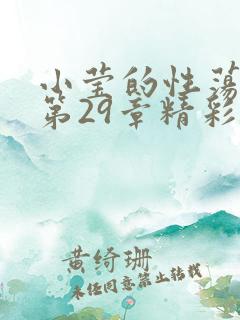 小莹的性荡
第29章精彩
黄绮珊
未经同意禁止转载